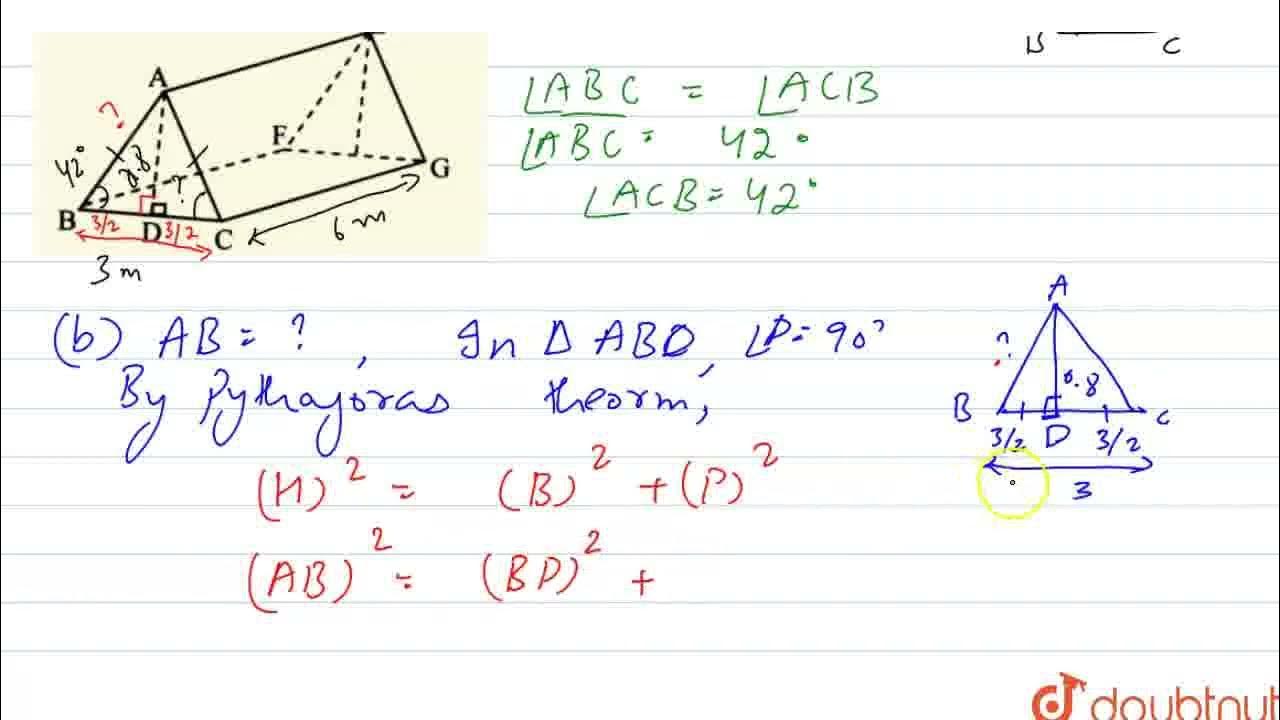 B C
A
?
42°
F
G
B
3/2
D
3/2
?
C
6 m
3 m
∠ABC = ∠ACB
∠ABC = 42°
∠ACB = 42°
(b) AB = ? , In Δ ABD, ∠D = 90°
By Pythajoras theorm,
(H)² = (B)² + (P)²
(AB)² = (BD)² +
A
?
B
C
3/2 D 3/2
3
doubtnut